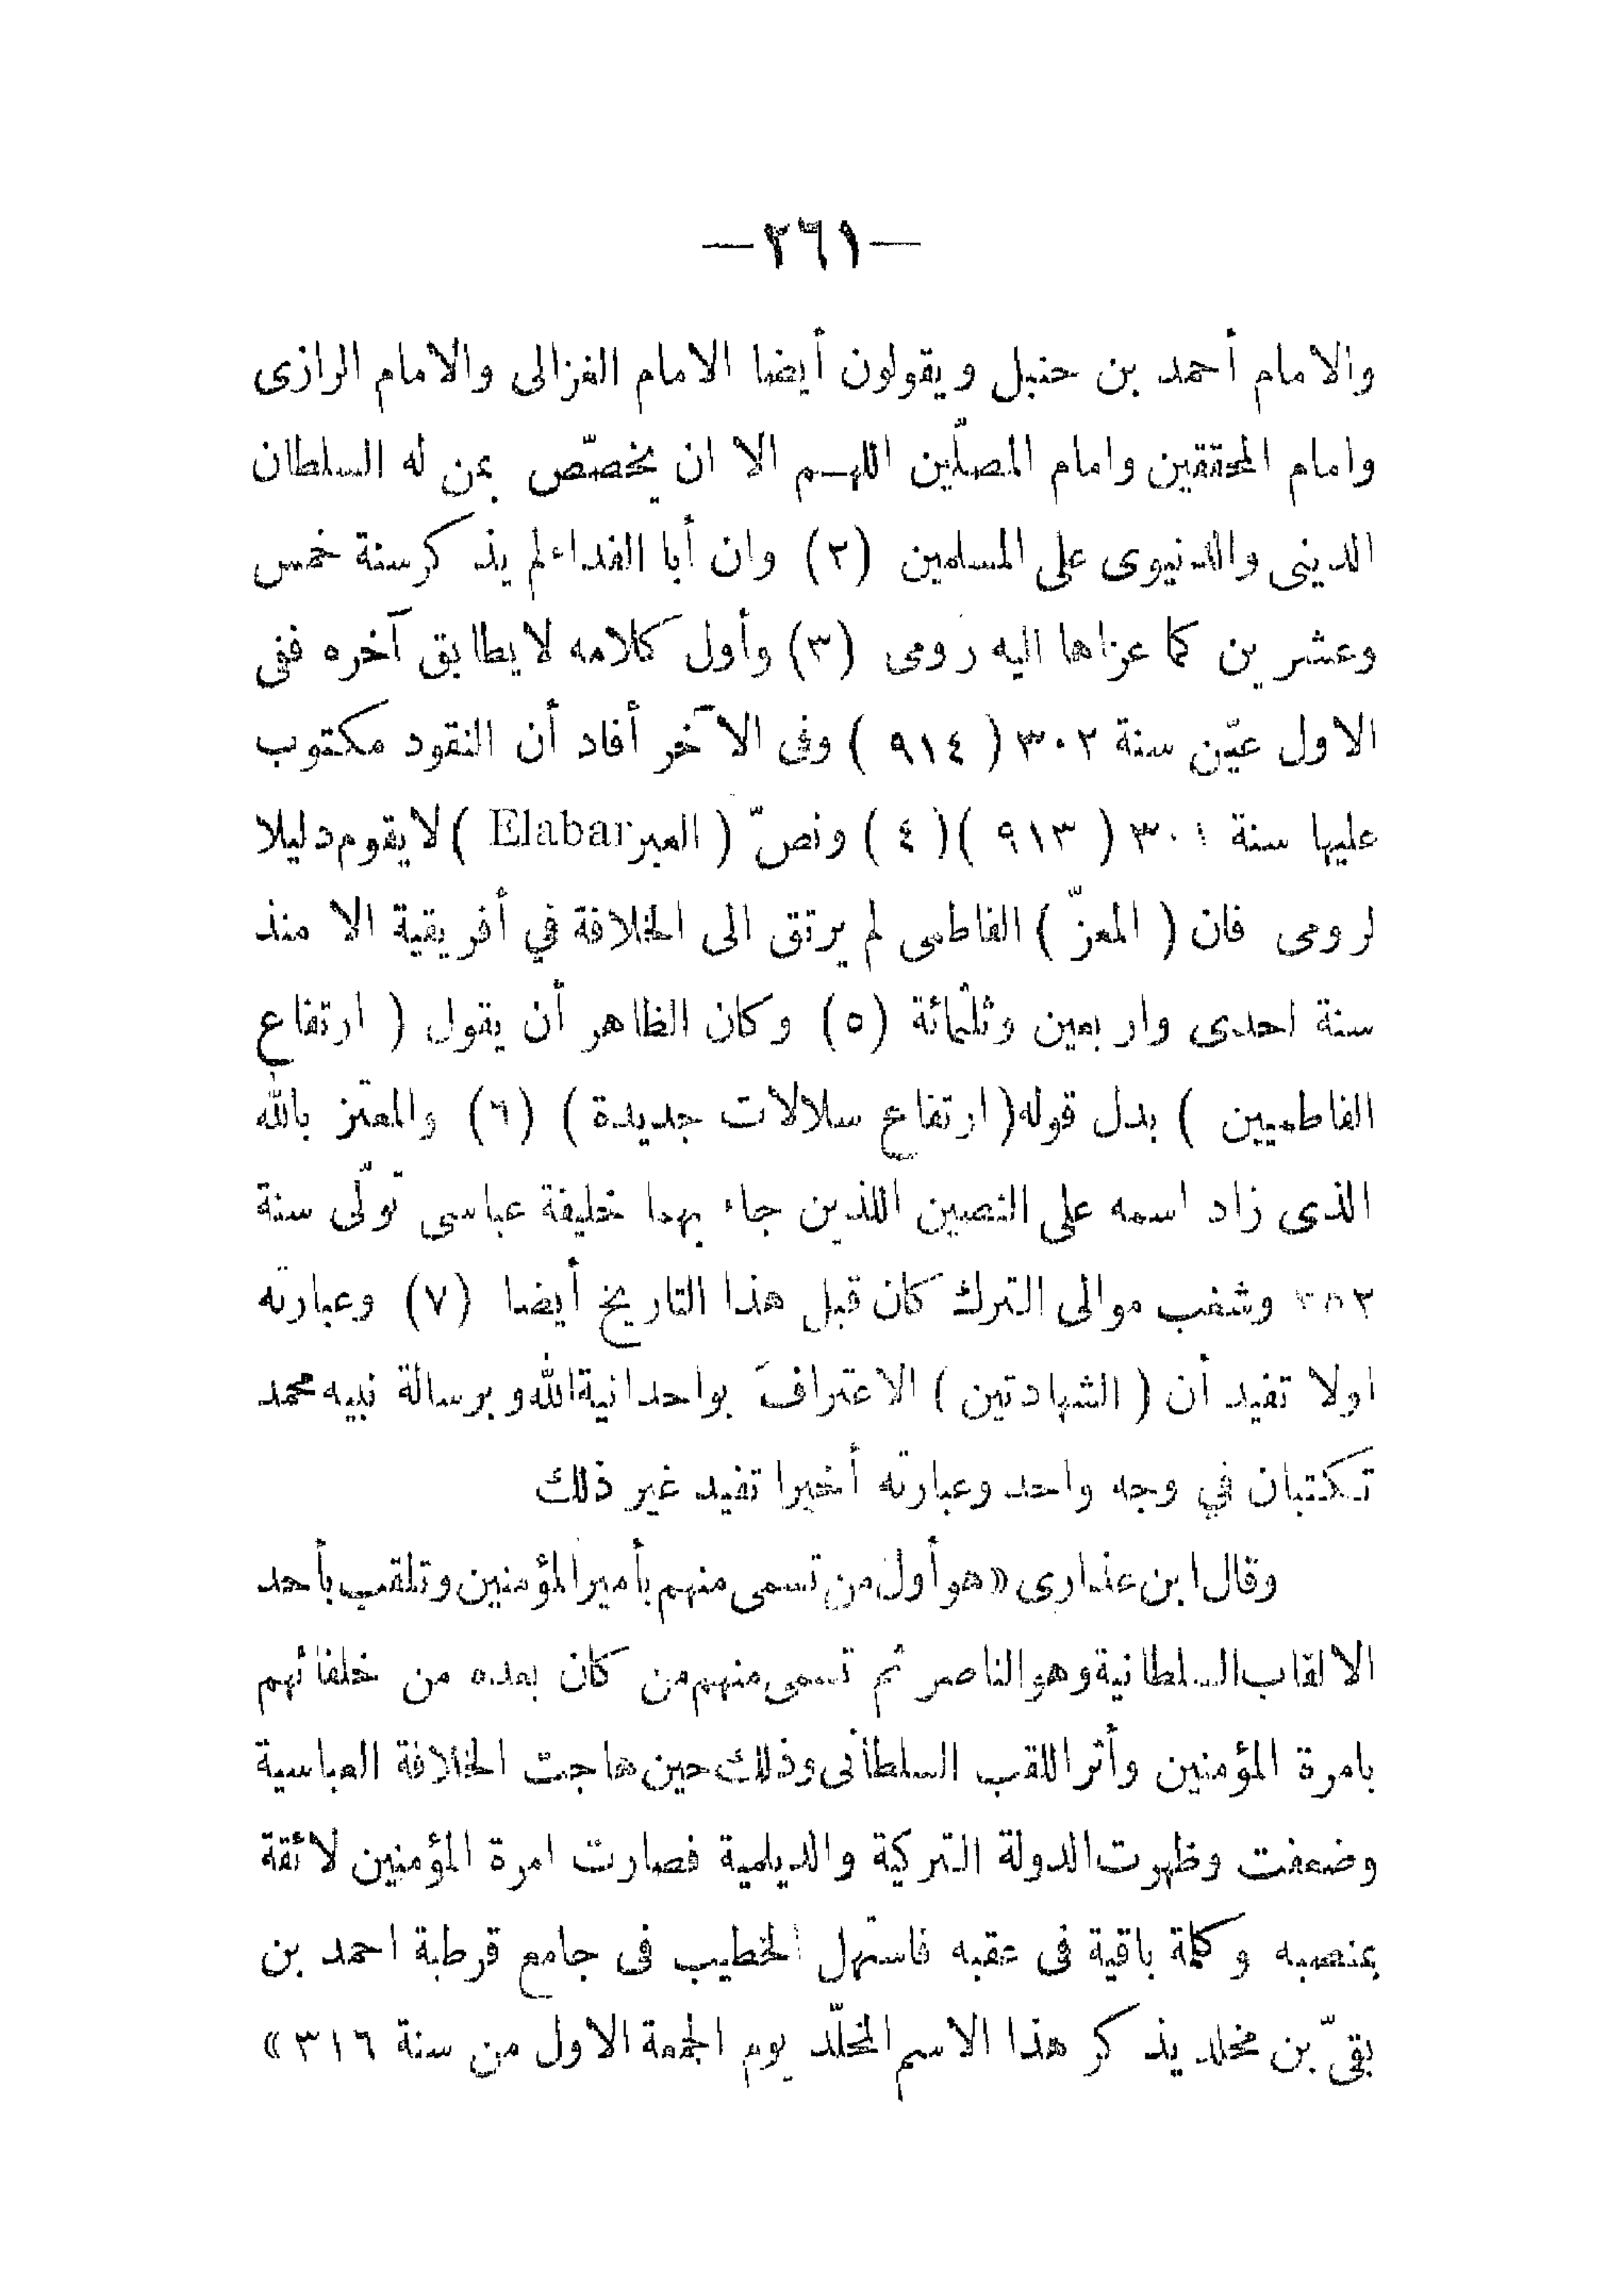 —٢٦١—
والامام أحمد بن حنبل ويقولون أيضا الامام الغزالى والامام الرازى
وامام المحققين وامام المصلّين اللهـم الا ان يخصّص بمن له السلطان
الدينى والدنيوى على المسلمين (٢) وان أبا الفداء لم يذكر سنة خمس
وعشرين كما عزاها اليه رومى (٣) وأول كلامه لا يطابق آخره ففى
الاول عيّن سنة ٣٠٢ ( ٩١٤ ) وفى الآخر أفاد أن النقود مكتوب
عليها سنة ٣٠١ ( ٩١٣ ) ( ٤ ) ونصّ ( العبر Elabar ) لا يقوم دليلا
لرومى فان ( المعزّ ) الفاطمى لم يرتق الى الخلافة في أفريقية الا منذ
سنة احدى واربعين وثلثمائة (٥) وكان الظاهر أن يقول ( ارتفاع
الفاطميين ) بدل قوله ( ارتفاع سلالات جديدة ) (٦) والمعتز بالله
الذى زاد اسمه على النصين اللذين جاء بهما خليفة عباسى تولّى سنة
وشغب موالى الترك كان قبل هذا التاريخ أيضا (٧) وعبارته
اولا تفيد أن ( الشهادتين ) الاعترافَ بواحدانية الله وبرسالة نبيه محمد
تـكتبان في وجه واحد وعبارته أخيرا تفيد غير ذلك
وقال ابن عذارى «هو أول من تسمى منهم بأمير المؤمنين وتلقب بأحد
الالقاب السلطانية وهو الناصر ثم تسمى منهم من كان بعده من خلفائهم
بامرة المؤمنين وأثر اللقب السلطانى وذلك حين هاجت الخلافة العباسية
وضعفت وظهرت الدولة التركية والديلمية فصارت امرة المؤمنين لائقة
بمنصبه وكلمة باقية فى عقبه فاستهل الخطيب فى جامع قرطبة احمد بن
بقىّ بن مخلد يذكر هذا الاسم المخلّد يوم الجمعة الاول من سنة ٣١٦ »